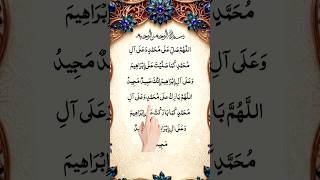 بسم الله الرحمن الرحيم
اللَّهُمَّ صَلِّ عَلَى مُحَمَّدٍ وَعَلَى آلِ
مُحَمَّدٍ كَمَا صَلَّيْتَ عَلَى إِبْرَاهِيمَ
وَعَلَى آلِ إِبْرَاهِيمَ إِنَّكَ حَمِيدٌ مَجِيدٌ
اللَّهُمَّ بَارِكْ عَلَى مُحَمَّدٍ وَعَلَى آلِ
مُحَمَّدٍ كَمَا بَارَكْتَ عَلَى إِبْرَاهِيمَ
وَعَلَى آلِ إِبْرَاهِيمَ
مَجِيدٌ